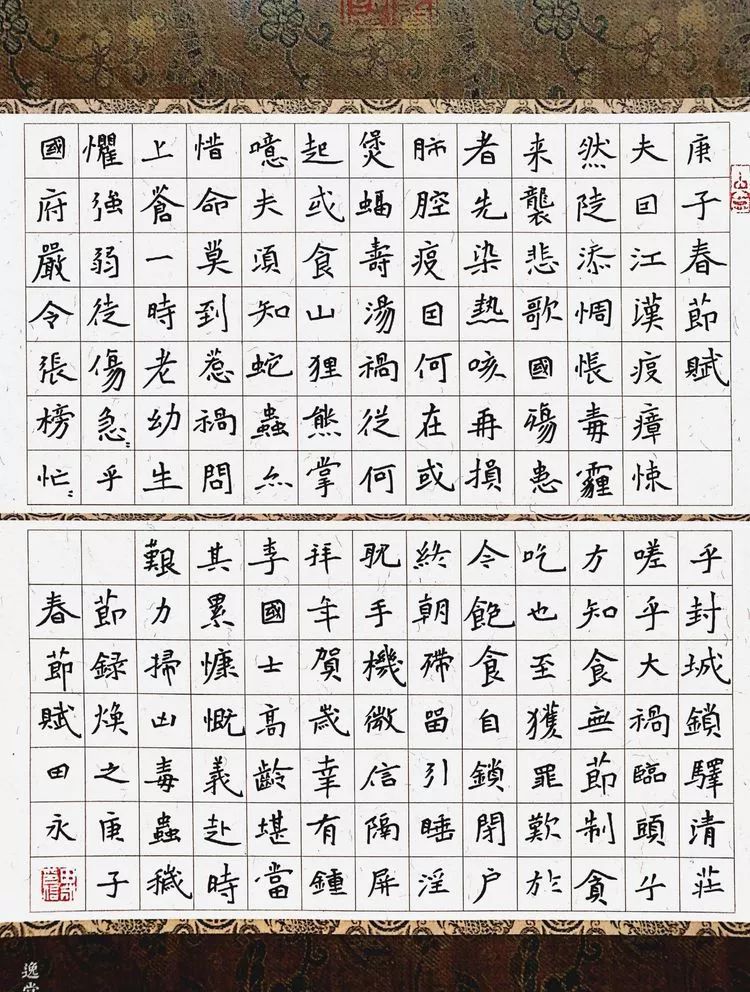 庚子春節賦
夫囙江漢疫瘴悚
然陡添惆悵毒霾
来襲悲歌國殤患
者先染熱咳再損
肺腔疫囙何在或
煲蝠壽湯禍從何
起或食山狸熊掌
噫夫須知蛇蟲亦
惜命莫到惹禍問
上蒼一時老幼生
懼強弱徒傷急〻乎
國府嚴令張榜忙〻
乎封城鎖驛清莊
嗟乎大禍臨頭兮
方知食無節制貪
吃也至獲罪歎於
今飽食自鎖閉户
終朝滯留引睡淫
耽手機微信隔屏
拜年賀歲幸有鍾
李國士高齡堪當
其累慷慨義赴時
艱力掃凶毒蟲穢
節録煥之庚子
春節賦田永
逸堂